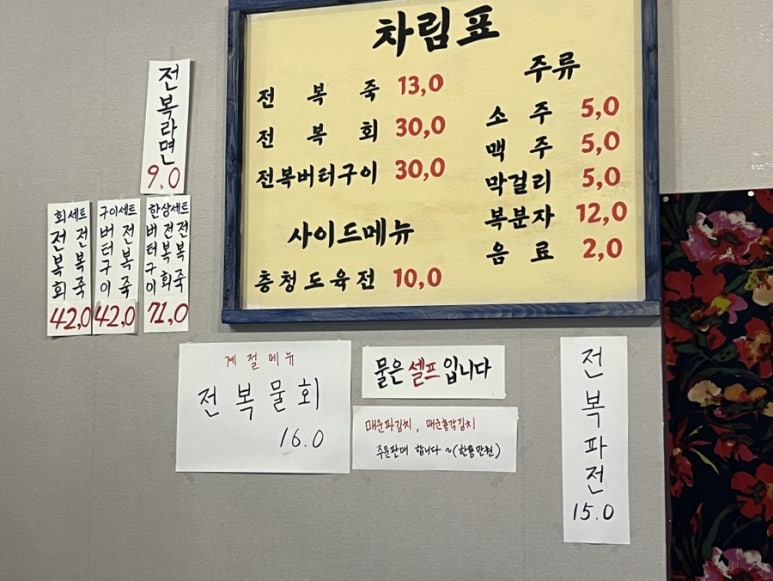 차림표
전복죽 13,0
전복회 30,0
전복버터구이 30,0
사이드메뉴
충청도육전 10,0
주류
소주 5,0
맥주 5,0
막걸리 5,0
복분자 12,0
음료 2,0
전복라면
9.0
회세트
전복회
전복죽
42,0
구이세트
버터구이
전복죽
42,0
한상세트
버터구이
전복회
전복죽
71,0
계절메뉴
전복물회
16.0
물은 셀프입니다
매운파김치, 매운총각김치
주문판매 합니다~(한통만원)
전복파전
15.0